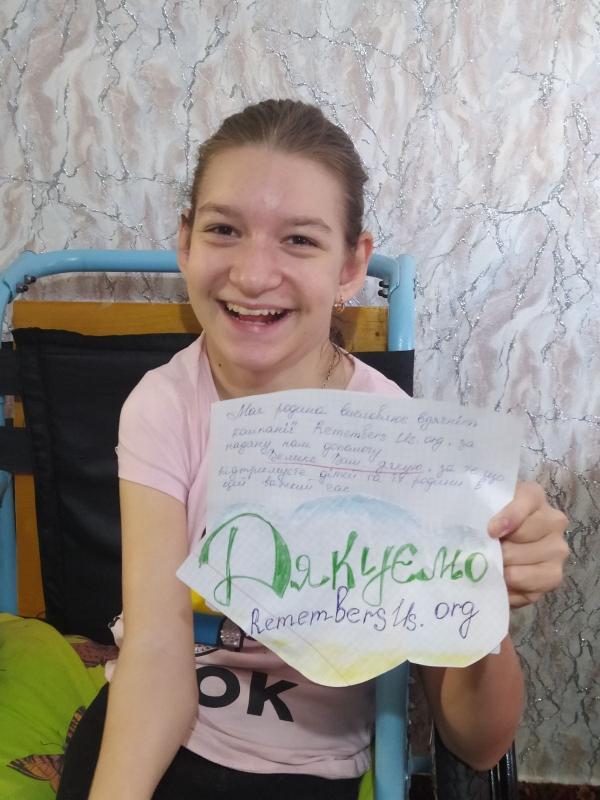 Моя родина висловлює вдячність
компанії Remembers Us.org, за
надану нам допомогу
Велике Вам дякую, за те що
підтримуєте дітки та їх родини в
цей важкий час
Дякуємо
RemembersUs.org
OK